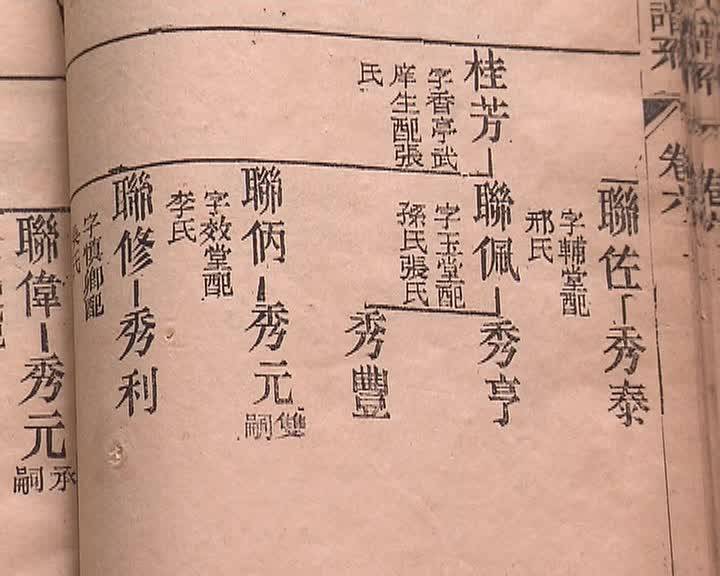 卷六
聯佐
字輔堂配
邢氏
秀泰
桂芳
字香亭武
庠生配張
氏
聯佩
字玉堂配
孫氏張氏
秀亨
秀豐
聯炳
字效堂配
李氏
秀元
雙
嗣
聯修
字慎卿配
氏
秀利
聯偉
秀元
承
嗣